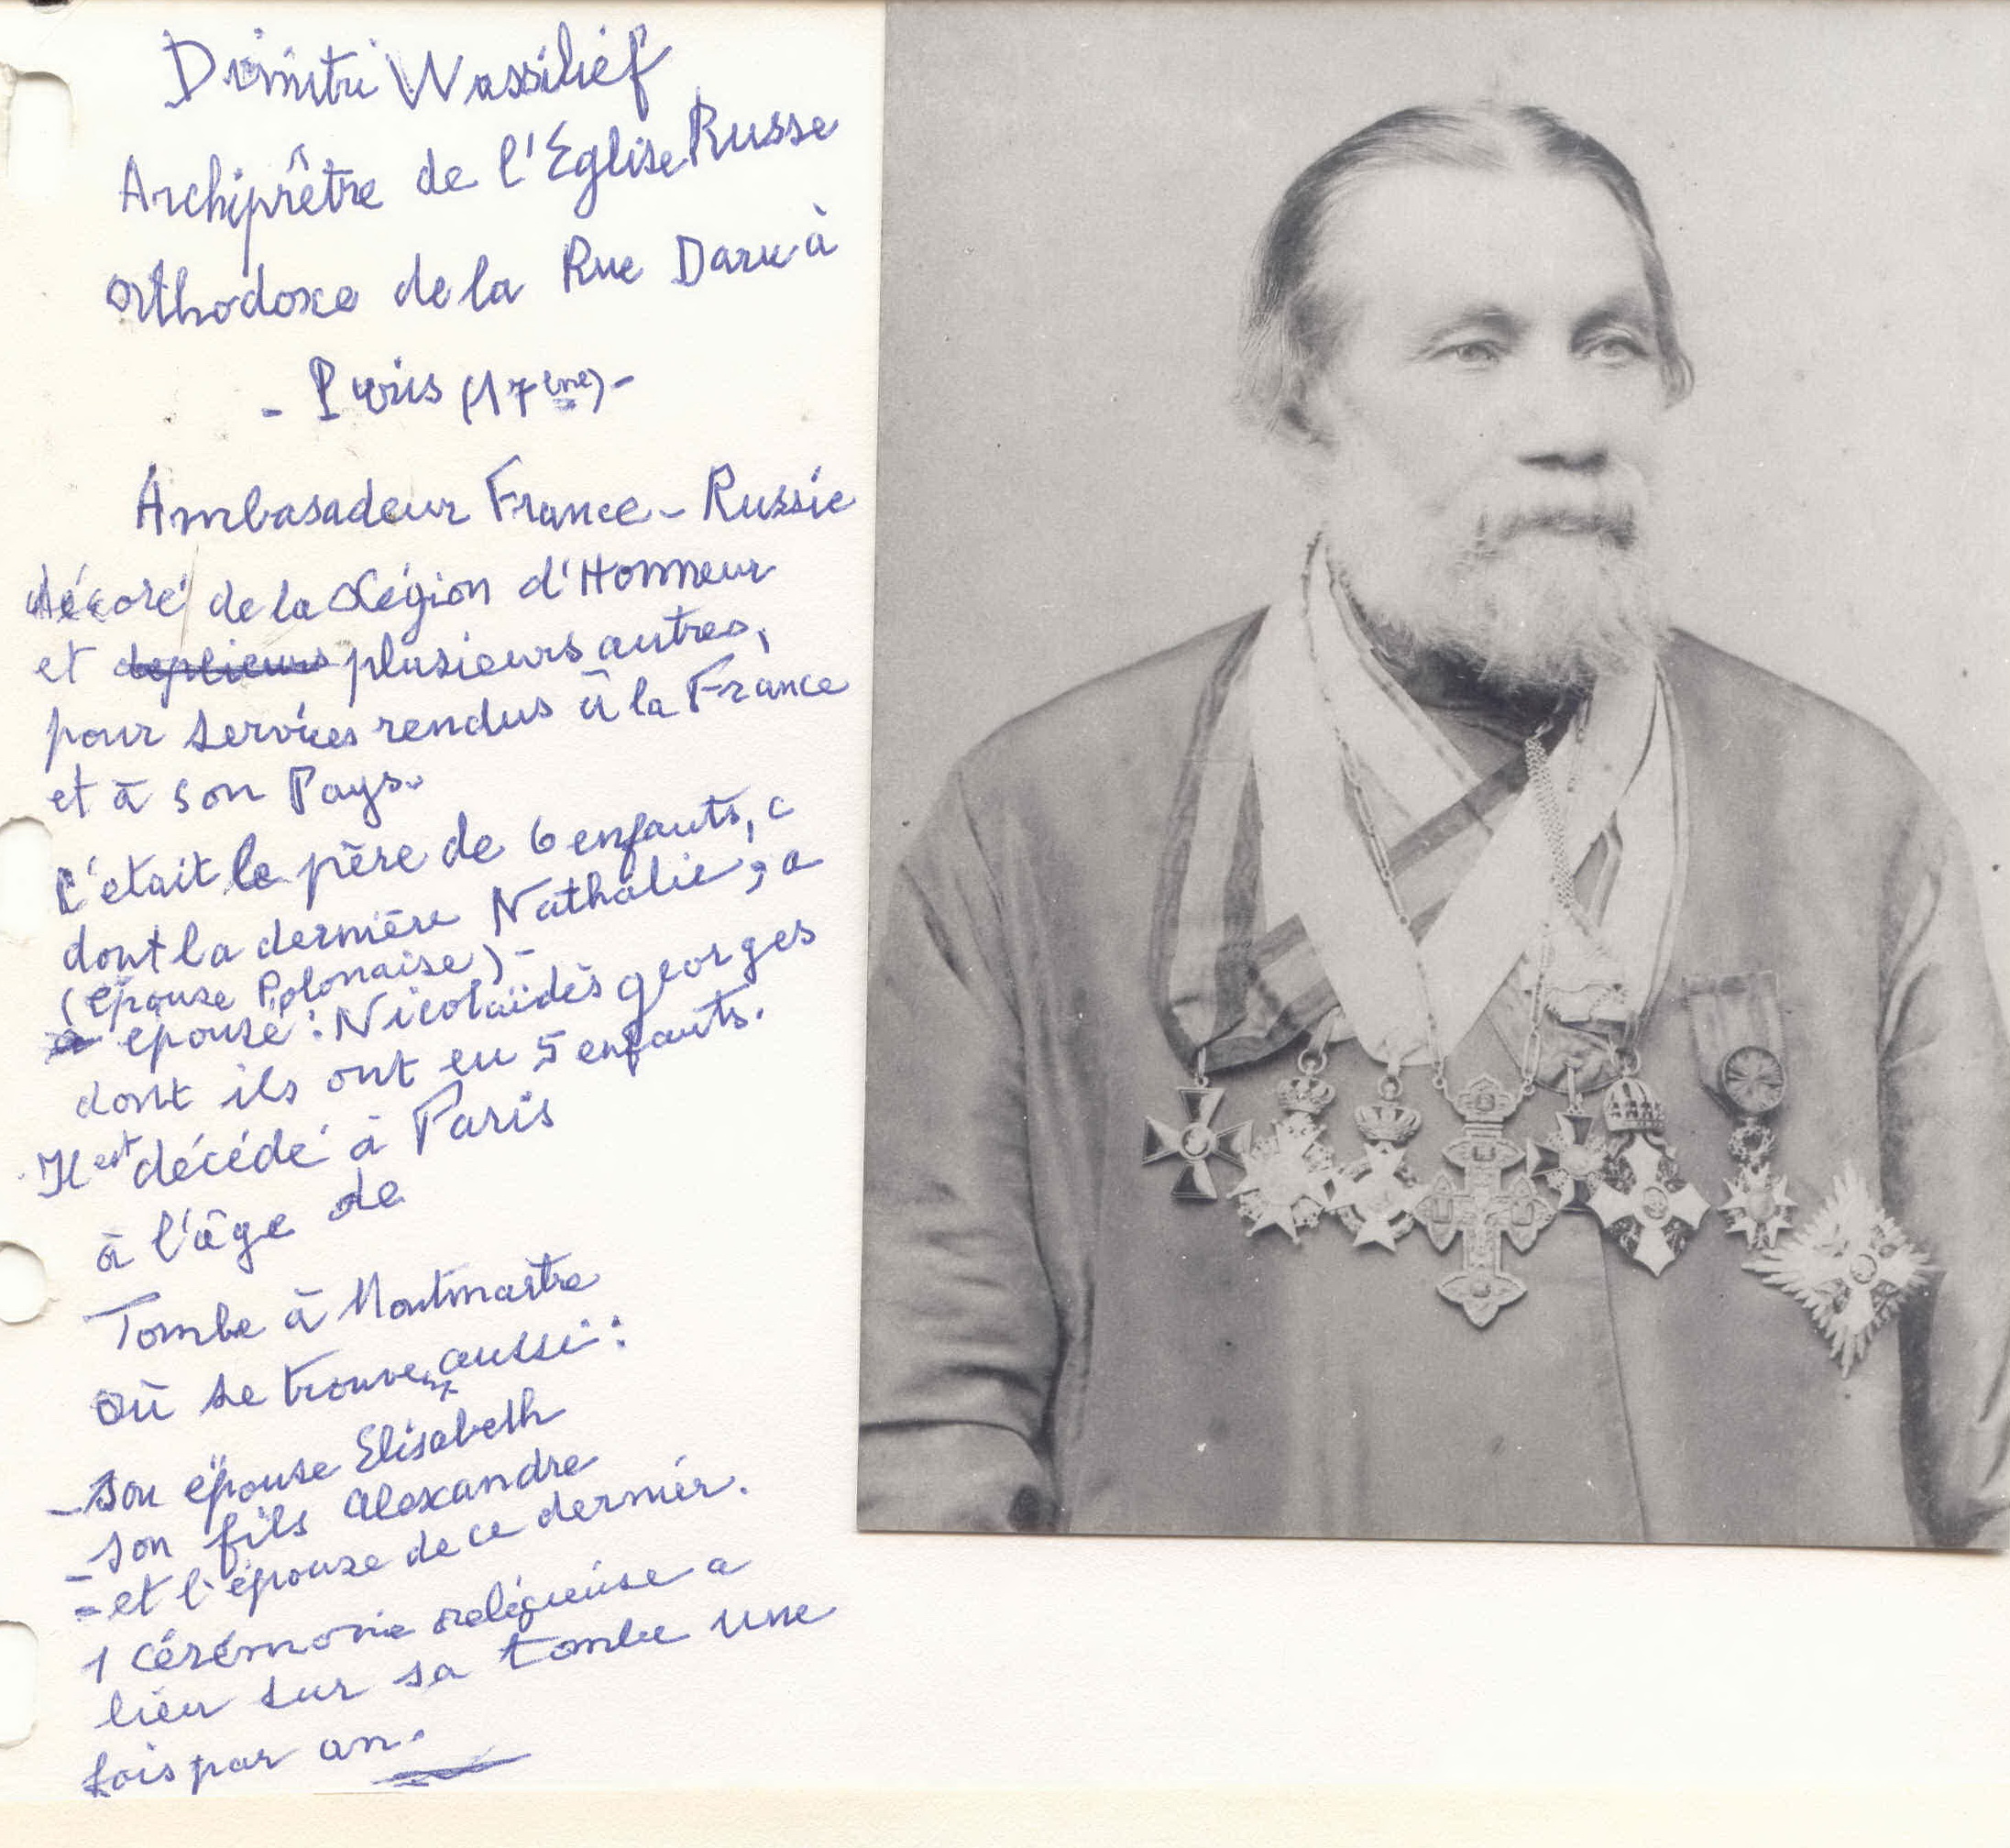 Dimitri Wassilief
Archiprêtre de l'Eglise Russe
Orthodoxe de la Rue Daru à
- Paris (17ème) -
Ambasadeur France - Russie
décoré de la Légion d'Honneur
et plusieurs autres,
pour services rendus à la France
et à son Pays.
C'était le père de 6 enfants, c
dont la dernière Nathalie, a
(épouse Polonaise) -
épousé : Nicolaïdès georges
dont ils ont eu 5 enfants.
Il est décédé à Paris
à l'âge de
Tombe à Montmartre
où se trouvent aussi :
- son épouse Elisabeth
- son fils Alexandre
- et l'épouse de ce dernier.
1 cérémonie religieuse a
lieu sur sa tombe une
fois par an.